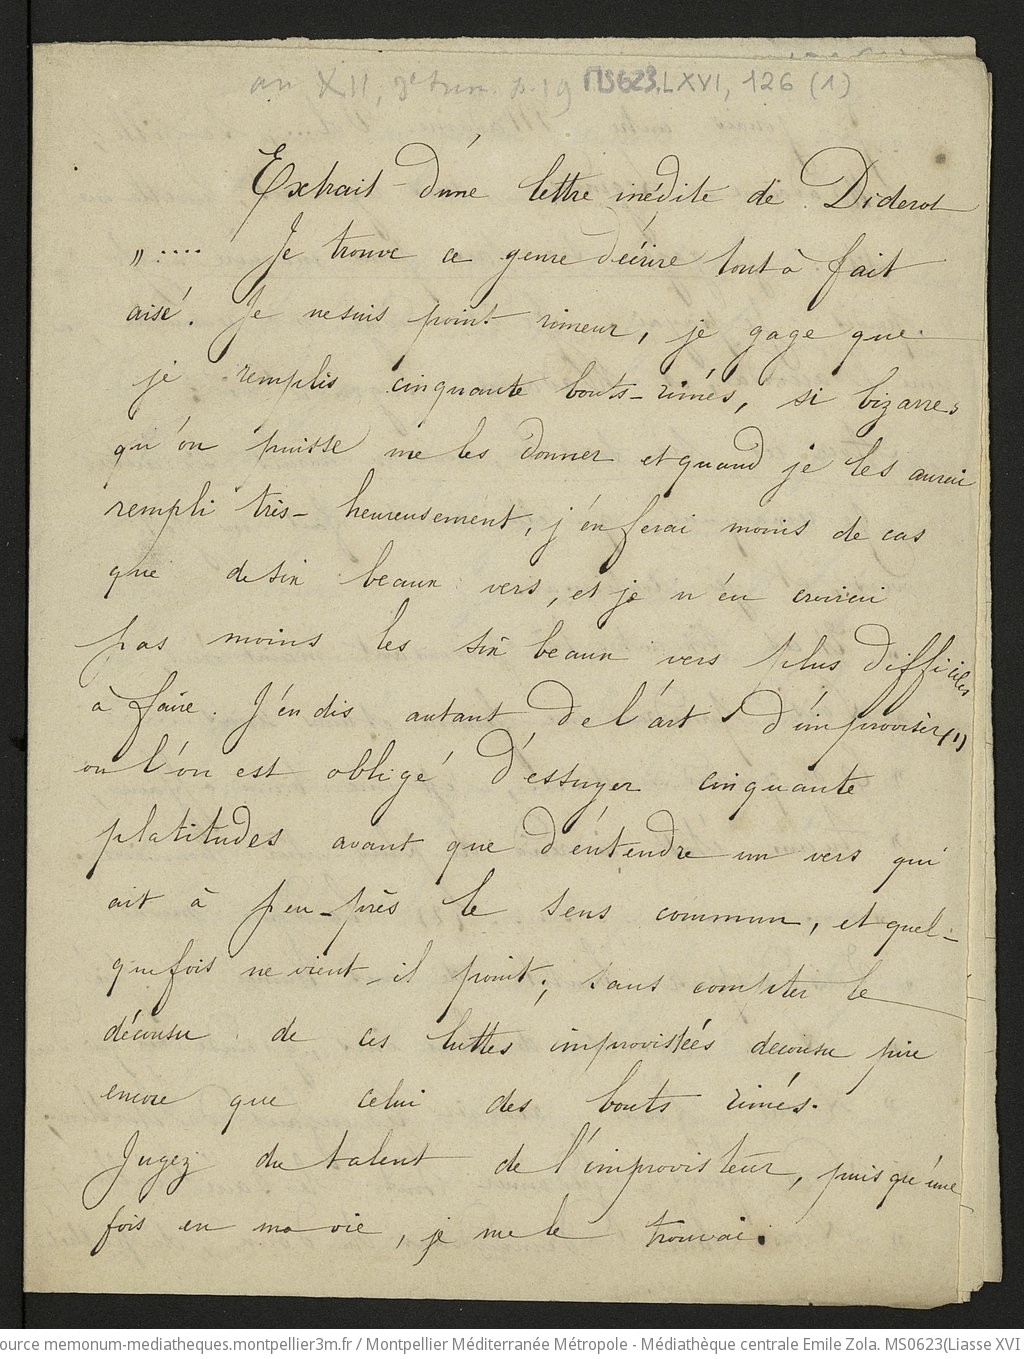 an XII, 3e trim. p. 19 MS623, LXVI, 126 (1)
Extrait d'une lettre inédite de Diderot
" .... Je trouve ce genre d'écrire tout à fait
aisé. Je ne suis point rimeur, je gage que
je remplis cinquante bouts-rimés, si bizarres
qu'on puisse me les donner et quand je les aurai
rempli très-heureusement, j'en ferai moins de cas
que de six beaux vers, et je n'en croirai
pas moins les six beaux vers plus difficiles
à faire. J'en dis autant de l'art d'improviser (1)
où l'on est obligé d'essuyer cinquante
platitudes avant que d'entendre un vers qui
ait à peu-près le sens commun, et quel-
quefois ne vient-il point; sans compter le
décousu de ces luttes improvisées decousu pire
encore que celui des bouts rimés.
Jugez du talent de l'improvisteur, puisqu'une
fois en ma vie, je me le trouvai.
source memonum-mediatheques.montpellier3m.fr / Montpellier Méditerranée Métropole - Médiathèque centrale Emile Zola. MS0623(Liasse XVI